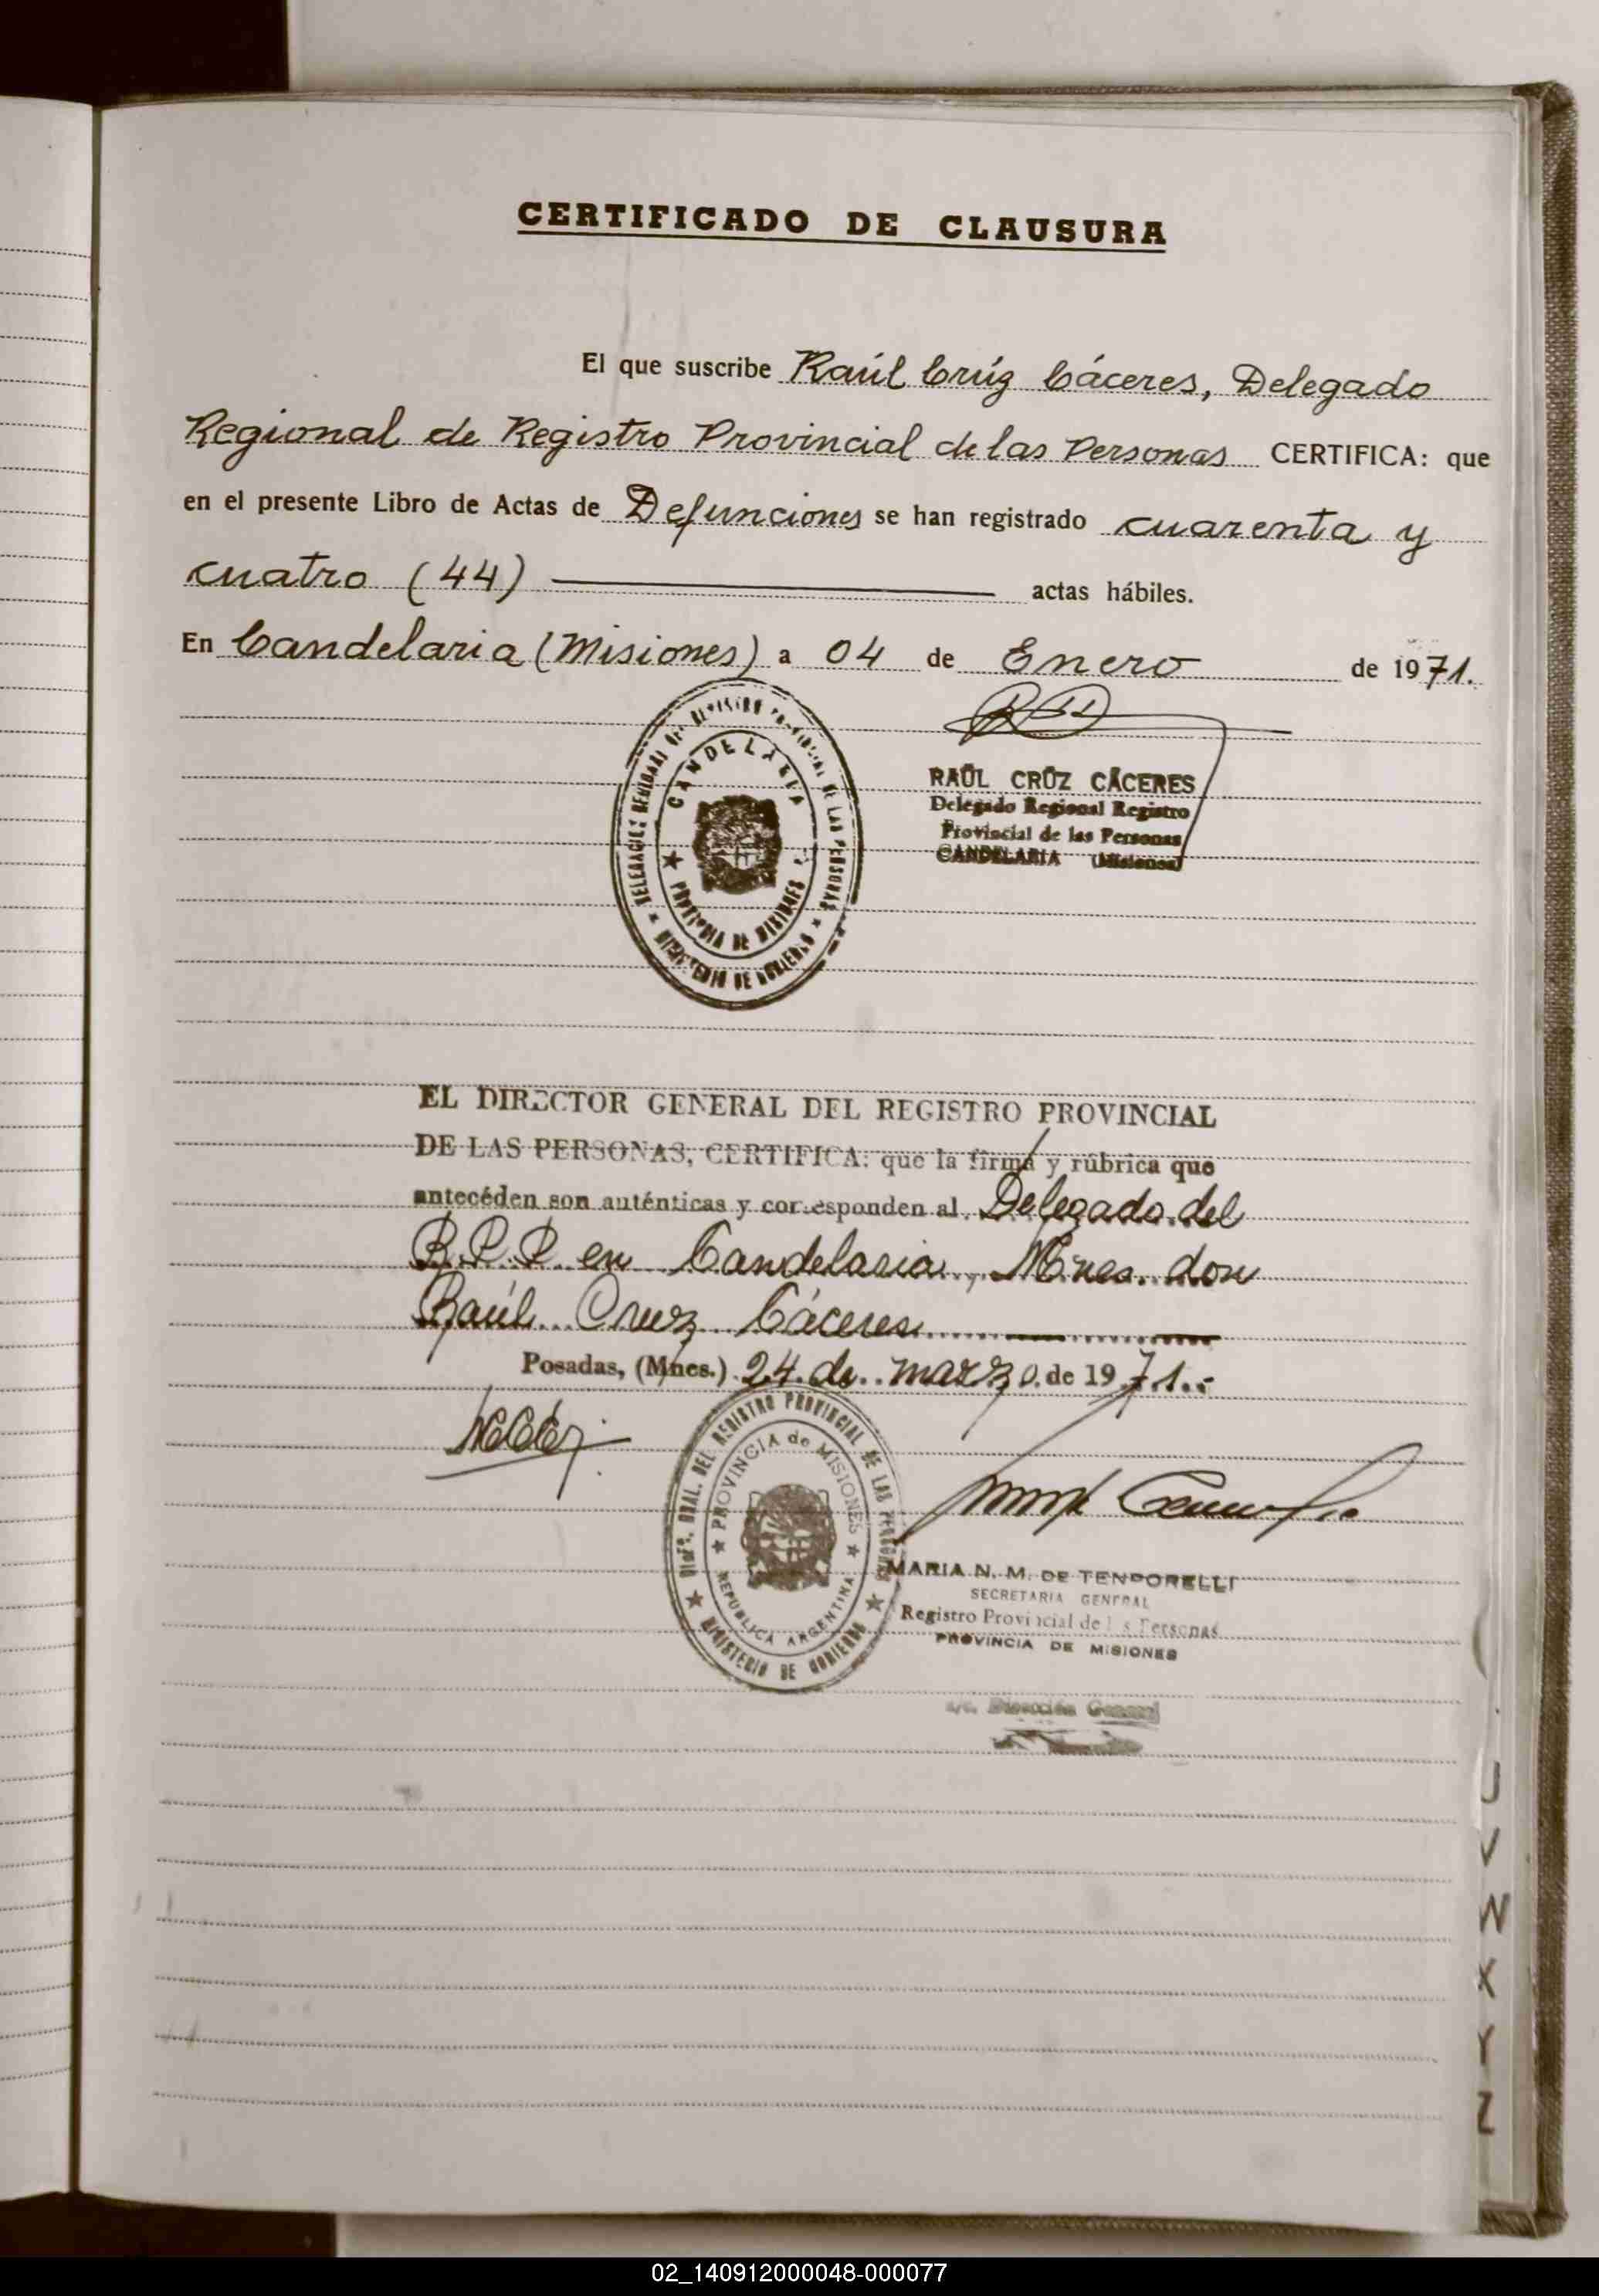 CERTIFICADO DE CLAUSURA
El que suscribe Raúl Crúz Cáceres, Delegado
Regional de Registro Provincial de las Personas CERTIFICA: que
en el presente Libro de Actas de Defunciones se han registrado cuarenta y
cuatro (44) actas hábiles.
En Candelaria (Misiones) a 04 de Enero de 1971.
CANDELARIA
PROVINCIA DE MISIONES
MINISTERIO DE GOBIERNO
RAÚL CRÚZ CÁCERES
Delegado Regional Registro
Provincial de las Personas
CANDELARIA (Misiones)
EL DIRECTOR GENERAL DEL REGISTRO PROVINCIAL
DE LAS PERSONAS, CERTIFICA: que la firma y rúbrica que
antecéden son auténticas y corresponden al Delegado del
R.P.P. en Candelaria, Mnes. don
Raúl Cruz Cáceres
Posadas, (Mnes.) 24 de marzo de 1971.-
DIREC. GRAL. DEL REGISTRO PROVINCIAL DE LAS PERSONAS
PROVINCIA de MISIONES
REPUBLICA ARGENTINA
MINISTERIO DE GOBIERNO
MARIA N. M. DE TENDORELLI
SECRETARIA GENERAL
Registro Provincial de las Personas
PROVINCIA DE MISIONES
a/c. Dirección General
U
V
W
X
Y
Z
02_140912000048-000077